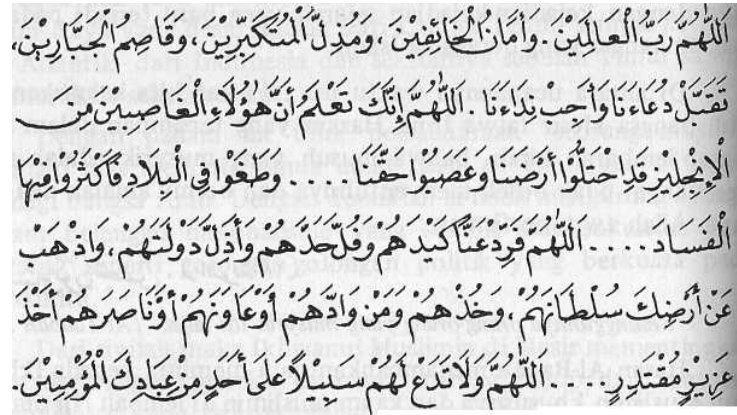 اَللّٰهُمَّ رَبَّ الْعَالَمِيْنَ، وَأَمَانُ الْخَائِفِيْنَ، وَمُذِلَّ الْمُتَكَبِّرِيْنَ، وَقَاصِمَ الْجَبَّارِيْنَ،
تَقَبَّلْ دُعَاءَنَا وَأَجِبْ نِدَاءَنَا اَللّٰهُمَّ إِنَّكَ تَعْلَمُ أَنَّ هَؤُلَاءِ الْغَاصِبِيْنَ مِنَ
الْإِنْجِلِيْزِ قَدِ احْتَلُّوْا أَرْضَنَا وَغَصَبُوْا حَقَّنَا وَطَغَوْا فِي الْبِلَادِ فَأَكْثَرُوْا فِيْهَا
الْفَسَادَ ..... اَللّٰهُمَّ فَرُدَّ عَنَّا كَيْدَهُمْ وَفُلَّ حَدَّهُمْ وَأَذِلَّ دَوْلَتَهُمْ وَاذْهَبْ
عَنْ أَرْضِكَ سُلْطَانَهُمْ، وَخُذْهُمْ وَمَنْ وَادَّهُمْ أَوْعَاوَنَهُمْ أَوْنَاصَرَهُمْ أَخْذَ
عَزِيْزٍ مُقْتَدِرٍ .... اَللّٰهُمَّ وَلَا تَدَعْ لَهُمْ سَبِيْلًا عَلَى أَحَدٍ مِنْ عِبَادِكَ الْمُؤْمِنِيْنَ.